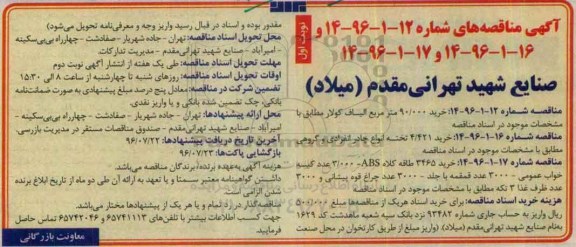 آگهی مناقصه‌های شماره ۱۲-۱-۹۶-۱۴ و
۱۶-۱-۹۶-۱۴ و ۱۷-۱-۹۶-۱۴
نوبت اول
صنایع شهید تهرانی‌مقدم (میلاد)
مناقصه شماره ۱۲-۱-۹۶-۱۴: خرید ۹۰/۰۰۰ متر مربع الیاف کولار مطابق با
مشخصات موجود در اسناد مناقصه
مناقصه شماره ۱۶-۱-۹۶-۱۴: خرید ۴/۴۲۱ تخته انواع چادر انفرادی و گروهی
مطابق با مشخصات موجود در اسناد مناقصه
مناقصه شماره ۱۷-۱-۹۶-۱۴: خرید ۳۴۶۵ طاقه کلاه ABS، ۳/۰۰۰ عدد کیسه
خواب عمومی - ۳۰۰۰ عدد قمقمه با جلد - ۳۰۰۰ عدد چراغ قوه پیشانی و ۳۰۰۰
عدد ظرف غذا ۳ تکه مطابق با مشخصات موجود در اسناد مناقصه
هزینه خرید اسناد مناقصه: برای خرید اسناد هریک از مناقصه‌ها مبلغ ۵۰۰/۰۰۰
ریال واریز به حساب جاری شماره ۹۳۴۸۲ نزد بانک سپه شعبه ماهدشت کد ۱۶۲۹
به‌نام صنایع شهید تهرانی‌مقدم (میلاد) (واریز مبلغ از طریق کارتخوان در محل صنعت
مقدور بوده و اسناد در قبال رسید واریز وجه و معرفی‌نامه تحویل می‌شود)
محل تحویل اسناد مناقصه: تهران - جاده شهریار - صفادشت - چهارراه بی‌بی‌سکینه
- امیرآباد - صنایع شهید تهرانی‌مقدم - مدیریت تدارکات.
مهلت تحویل اسناد مناقصه: طی یک هفته از انتشار آگهی نوبت دوم
اوقات تحویل اسناد مناقصه: روزهای شنبه تا چهارشنبه از ساعت ۸ الی ۱۵:۳۰
تضمین شرکت در مناقصه: معادل پنج درصد مبلغ پیشنهادی به صورت ضمانت‌نامه
بانکی، چک تضمین شده بانکی و یا واریز نقدی.
محل ارائه پیشنهادها: تهران - جاده شهریار - صفادشت - چهارراه بی‌بی‌سکینه -
امیرآباد - صنایع شهید تهرانی‌مقدم - صندوق مناقصات مستقر در مدیریت بازرسی.
آخرین تاریخ دریافت پیشنهادها: ۹۶/۰۷/۲۲
بازگشایی پاکت‌ها: ۹۶/۰۷/۲۳
هزینه آگهی به‌عهده برنده/برندگان مناقصه می‌باشد.
داشتن گواهینامه معتبر سمتا و یا تعهد به ارائه آن طی دو ماه از تاریخ ابلاغ برنده
شدن الزامی است.
مناقصه‌گذار در رد تمام و یا هر یک از پیشنهادها مختار می‌باشد.
جهت کسب اطلاعات بیشتر با تلفن‌های ۶۵۷۴۱۱۱۳ و ۶۵۷۴۲۰۴۶ تماس حاصل
فرمایید.
معاونت بازرگانی